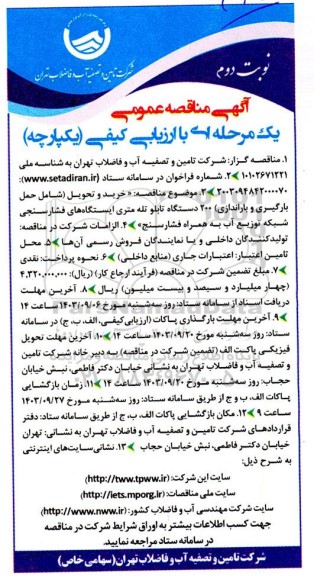 شرکت تامین و تصفیه آب و فاضلاب تهران
نوبت دوم
آگهی مناقصه عمومی
یک مرحله ای با ارزیابی کیفی (یکپارچه)
۱. مناقصه گزار: شرکت تامین و تصفیه آب و فاضلاب تهران به شناسه ملی
۱۰۱۰۲۶۷۱۳۲۱ ۲. شماره فراخوان در سامانه ستاد (www.setadiran.ir):
۲۰۰۳۰۹۴۸۴۲۰۰۰۰۷۰ ۳. موضوع مناقصه: «خرید و تحویل (شامل حمل
بارگیری و باراندازی) ۲۰۰ دستگاه تابلو تله متری ایستگاه‌های فشارسنجی
شبکه توزیع آب به همراه فشارسنج» ۴. الزامات شرکت در مناقصه:
تولیدکنندگان داخلی و یا نمایندگان فروش رسمی آن‌ها ۵. محل
تامین اعتبار: اعتبارات جاری (منابع داخلی) ۶. نحوه پرداخت: نقدی
۷. مبلغ تضمین شرکت در مناقصه (فرآیند ارجاع کار) (ریال): ۴.۳۲۰.۰۰۰.۰۰۰
(چهار میلیارد و سیصد و بیست میلیون) ریال ۸. آخرین مهلت
دریافت اسناد از سامانه ستاد: روز سه‌شنبه مورخ ۱۴۰۳/۰۹/۰۶ ساعت ۱۴
۹. آخرین مهلت بارگذاری پاکات (ارزیابی کیفی، الف، ب، ج) در سامانه
ستاد: روز سه‌شنبه مورخ ۱۴۰۳/۰۹/۲۰ ساعت ۱۴ ۱۰. آخرین مهلت تحویل
فیزیکی پاکت الف (تضمین شرکت در مناقصه) به دبیر خانه شرکت تامین
و تصفیه آب و فاضلاب تهران به نشانی خیابان دکتر فاطمی، نبش خیابان
حجاب: روز سه‌شنبه مورخ ۱۴۰۳/۰۹/۲۰ ساعت ۱۴ ۱۱. زمان بازگشایی
پاکات الف، ب و ج از طریق سامانه ستاد: روز سه‌شنبه مورخ ۱۴۰۳/۰۹/۲۷
ساعت ۹ ۱۲. مکان بازگشایی پاکات الف، ب، ج از طریق سامانه ستاد: دفتر
قراردادهای شرکت تامین و تصفیه آب و فاضلاب تهران به نشانی: تهران
خیابان دکتر فاطمی، نبش خیابان حجاب ۱۳. نشانی سایت‌های اینترنتی
به شرح ذیل:
سایت این شرکت: (http://tww.tpww.ir)
سایت ملی مناقصات: (http://iets.mporg.ir)
سایت شرکت مهندسی آب و فاضلاب کشور: (http://www.nww.ir)
جهت کسب اطلاعات بیشتر به اوراق شرایط شرکت در مناقصه
در سامانه ستاد مراجعه نمایید.
شرکت تامین و تصفیه آب و فاضلاب تهران (سهامی خاص)